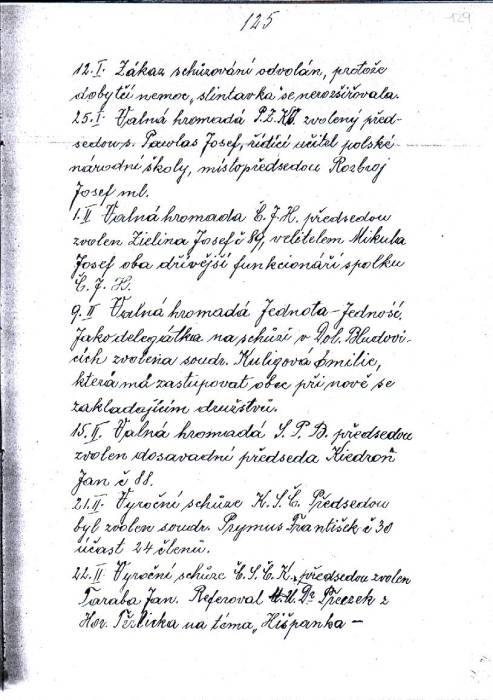 125
129
12.I. Zákaz schůzování odvolán, protože
dobytčí nemoc „slintavka" se nerozšiřovala.
25.I. Valná hromada P.Z.KO. zvolený před-
sedou s. Pawlas Josef, řídící učitel polské
národní školy, místopředsedou Rozbroj
Josef ml.
1.II Valná hromada Č.J.H. předsedou
zvolen Zielina Josef č 89, velitelem Mikula
Josef oba dřívější funkcionáři spolku
Č.J.H.
9.II Valná hromadá Jednota-Jedność.
Jako delegátka na schůzi v Dol. Bludovi-
cích zvolena soudr. Kuligová Emilie,
která má zastupovat obec při nově se
zakladajícím družstvu.
15.II. Valná hromadá S.P.B. předsedou
zvolen dosavadní předseda Kiedroň
Jan č 88.
21.II. Vyroční schůze K.S.Č. Předsedou
byl zvolen soudr. Prymus František č 30
účast 24 členů.
22.II. Vyroční schůze Č.S.Č.K. předsedou zvolen
Taraba Jan. Referoval Dr Preczek z
Hor. Těrlicka na téma „Hišpanka —